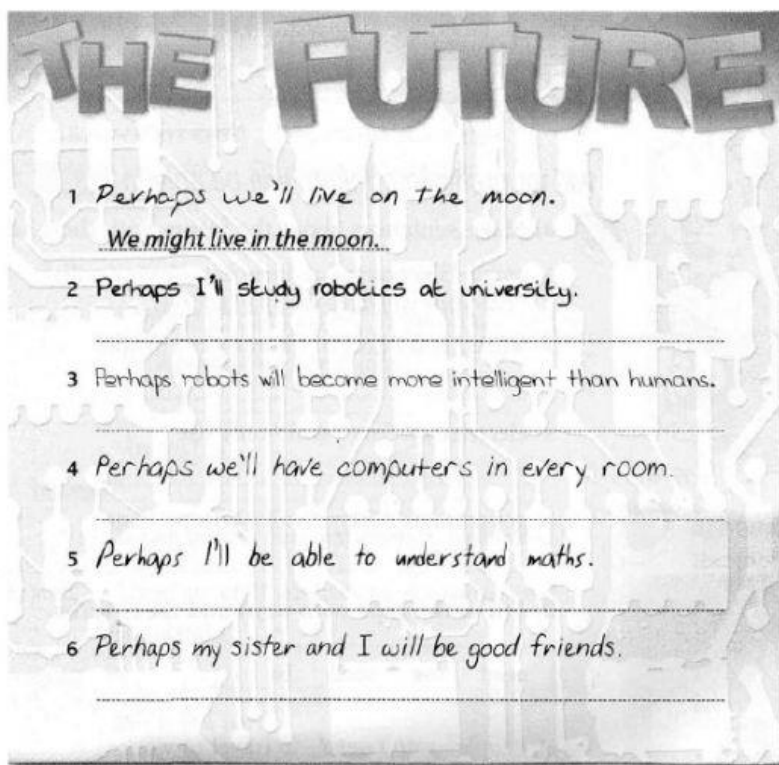 THE FUTURE
1 Perhaps we'll live on the moon.
We might live in the moon.
2 Perhaps I'll study robotics at university.
3 Perhaps robots will become more intelligent than humans.
4 Perhaps we'll have computers in every room.
5 Perhaps I'll be able to understand maths.
6 Perhaps my sister and I will be good friends.